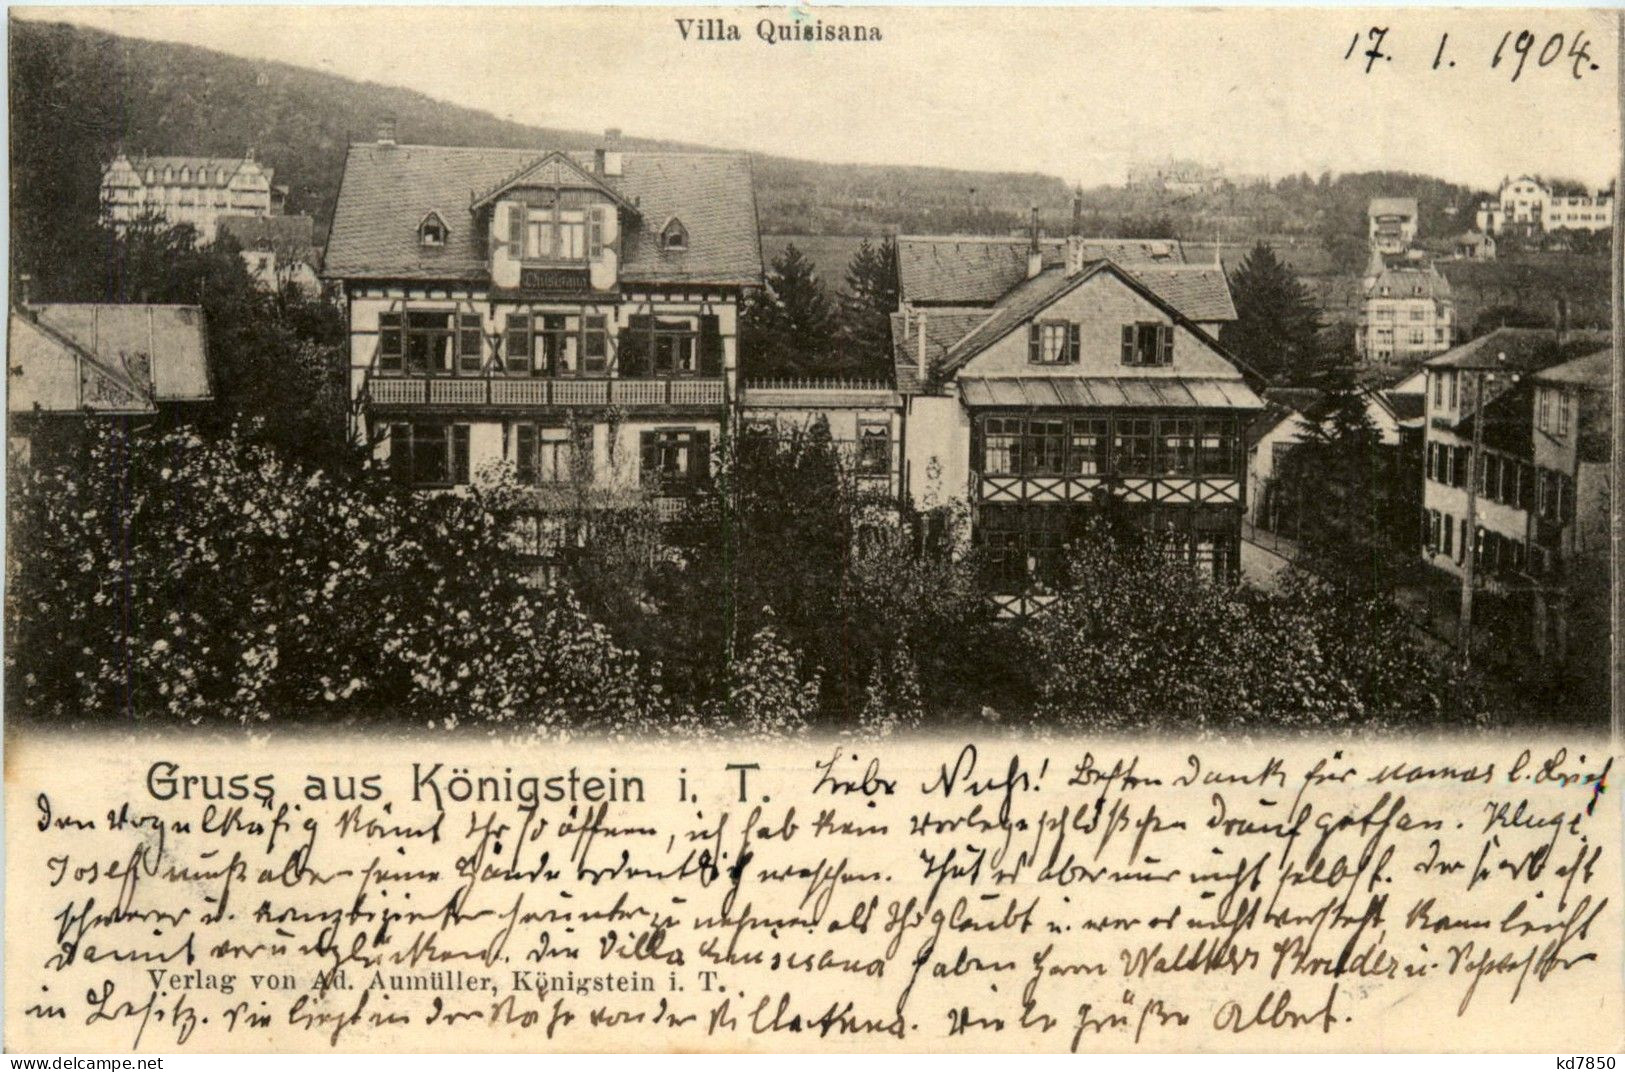 Villa Quisisana
17. 1. 1904.
Quisisana
Gruss aus Königstein i. T.
Liebe! Besten Dank für Mamas l. Brief
den Vogelkäfig könnt Ihr so öffnen, ich hab kein Vorlegeschlößchen drauf gethan. Kluge
Josef muß aber seine Hände ordentlich waschen. Thut es aber nur nicht selbst. Der ist
schwerer u. herunter zu nehmen als Ihr glaubt u. wer es nicht versteht, kann leicht
damit verunglücken. Die Villa Quisisana haben Herrn Walthers Bruder u. Schwester
Verlag von Ad. Aumüller, Königstein i. T.
in Besitz. Sie liegt in der Nähe von der Villa. Viele Grüße Albert.
kd7850